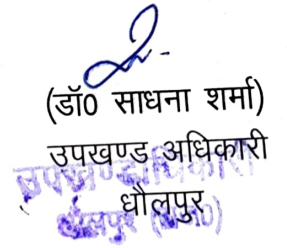 (डॉ0 साधना शर्मा)
उपखण्ड अधिकारी
धौलपुर
उपखण्डाधिकारी
धौलपुर (राज0)